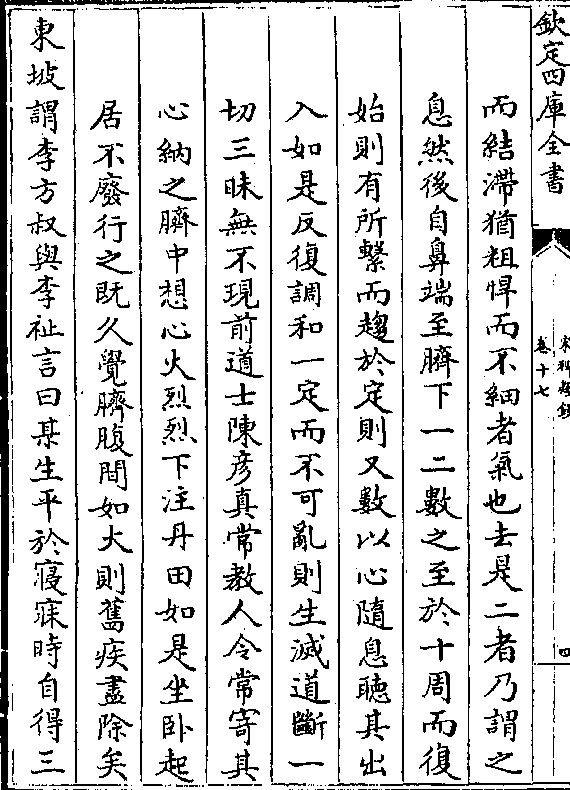 欽定四庫全書
卷十七
四
而結滯猶粗悍而不細者氣也去是二者乃謂之
息然後自鼻端至臍下一二數之至於十周而復
始則有所繫而趨於定則又數以心隨息聽其出
入如是反復調和一定而不可亂則生滅道斷一
切三昧無不現前道士陳彦真常教人令常寄其
心納之臍中想心火烈烈下注丹田如是坐卧起
居不廢行之既久覺臍腹間如火則舊疾盡除矣
東坡謂李方叔與李祉言曰某生平於寢寐時自得三